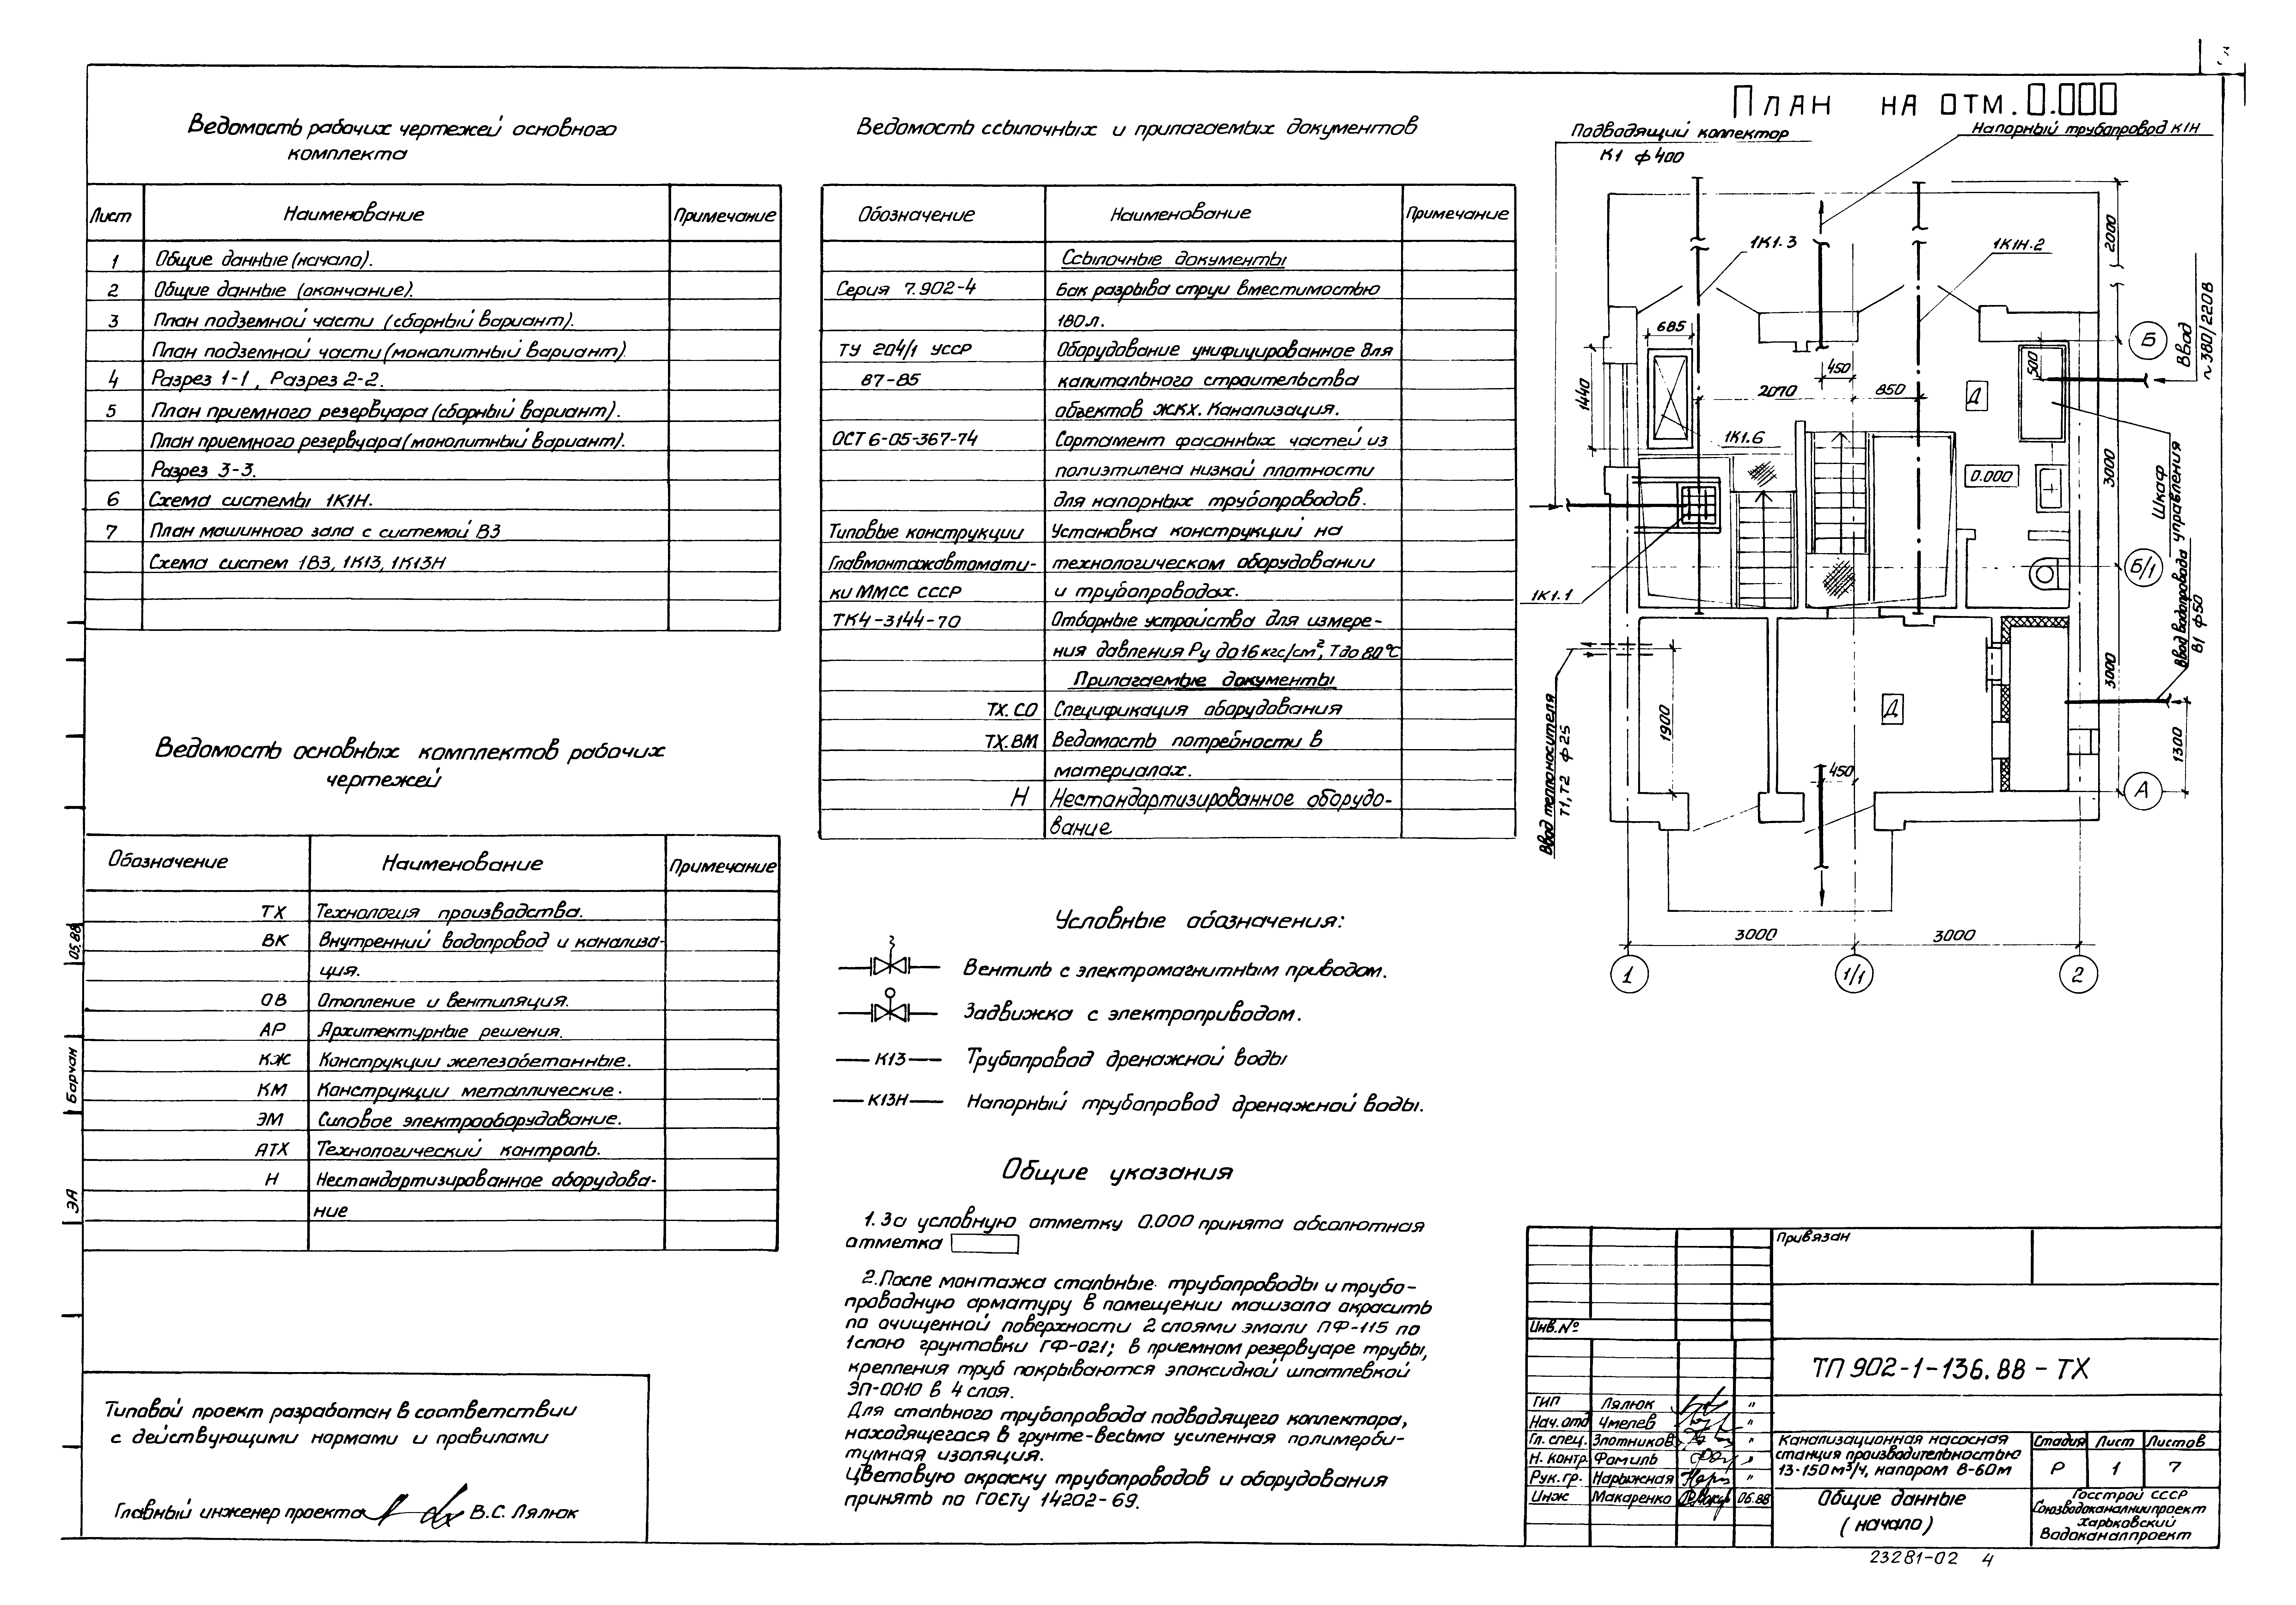 Ведомость рабочих чертежей основного
комплекта
Лист Наименование Примечание
1 Общие данные (начало).
2 Общие данные (окончание).
3 План подземной части (сборный вариант).
План подземной части (монолитный вариант)
4 Разрез 1-1, Разрез 2-2.
5 План приемного резервуара (сборный вариант).
План приемного резервуара (монолитный вариант).
Разрез 3-3.
6 Схема системы 1К1Н.
7 План машинного зала с системой В3
Схема систем 1В3, 1К13, 1К13Н
Ведомость основных комплектов рабочих
чертежей
Обозначение Наименование Примечание
ТХ Технология производства.
ВК Внутренний водопровод и канализа-
ция.
ОВ Отопление и вентиляция.
АР Архитектурные решения.
КЖ Конструкции железобетонные.
КМ Конструкции металлические.
ЭМ Силовое электрооборудование.
АТХ Технологический контроль.
Н Нестандартизированное оборудова-
ние
05.88
Барчан
ЭА
Типовой проект разработан в соответствии
с действующими нормами и правилами
Главный инженер проекта В.С. Лялюк
Ведомость ссылочных и прилагаемых документов
Обозначение Наименование Примечание
Ссылочные документы
Серия 7.902-4 Бак разрыва струи вместимостью
180 л.
ТУ 204/1 УССР Оборудование унифицированное для
87-85 капитального строительства
объектов ЖКХ. Канализация.
ОСТ 6-05-367-74 Сортамент фасонных частей из
полиэтилена низкой плотности
для напорных трубопроводов.
Типовые конструкции Установка конструкций на
Главмонтажавтомати- технологическом оборудовании
ки ММСС СССР и трубопроводах.
ТК4-3144-70 Отборные устройства для измере-
ния давления Ру до 16 кгс/см², Т до 80°С
Прилагаемые документы
ТХ.СО Спецификация оборудования
ТХ.ВМ Ведомость потребности в
материалах.
Н Нестандартизированное оборудо-
вание
Условные обозначения:
Вентиль с электромагнитным приводом.
Задвижка с электроприводом.
К13 Трубопровод дренажной воды
К13Н Напорный трубопровод дренажной воды.
Общие указания
1. За условную отметку 0.000 принята абсолютная
отметка
2. После монтажа стальные трубопроводы и трубо-
проводную арматуру в помещении машзала окрасить
по очищенной поверхности 2 слоями эмали ПФ-115 по
1слою грунтовки ГФ-021; в приемном резервуаре трубы,
крепления труб покрываются эпоксидной шпатлевкой
ЭП-0010 в 4 слоя.
Для стального трубопровода подводящего коллектора,
находящегося в грунте-весьма усиленная полимерби-
тумная изоляция.
Цветовую окраску трубопроводов и оборудования
принять по ГОСТу 14202-69.
План на отм. 0.000
Подводящий коллектор
К1 ф 400
Напорный трубопровод К1Н
1К1.3
1К1Н.2
2000
685
450
2070
850
1440
500
Д
Б
Ввод
~380/220В
1К1.6
0.000
3000
Шкаф
управления
1К1.1
Б/1
Ввод водопровода
В1 ф50
3000
Ввод теплоносителя
Т1, Т2 ф 25
1900
Д
450
1300
А
3000
3000
1
1/1
2
Привязан
Инв.№
ТП 902-1-136.88-ТХ
ГИП Лялюк "
Нач. отд Чмелев "
Гл. спец. Злотников "
Н. контр. Фомиль "
Рук. гр. Нарыжная "
Инж Макаренко 06.88
Канализационная насосная
станция производительностью
13-150 м³/ч, напором 8-60м
Стадия Лист Листов
Р 1 7
Общие данные
(начало)
Госстрой СССР
Союзводоканалниипроект
Харьковский
Водоканалпроект
23281-02 4